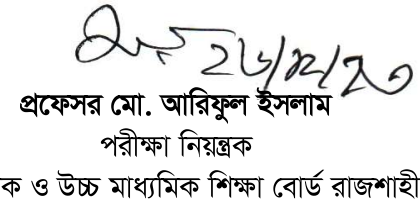 ২৬/১২/২৩
প্রফেসর মো. আরিফুল ইসলাম
পরীক্ষা নিয়ন্ত্রক
ক ও উচ্চ মাধ্যমিক শিক্ষা বোর্ড রাজশাহী